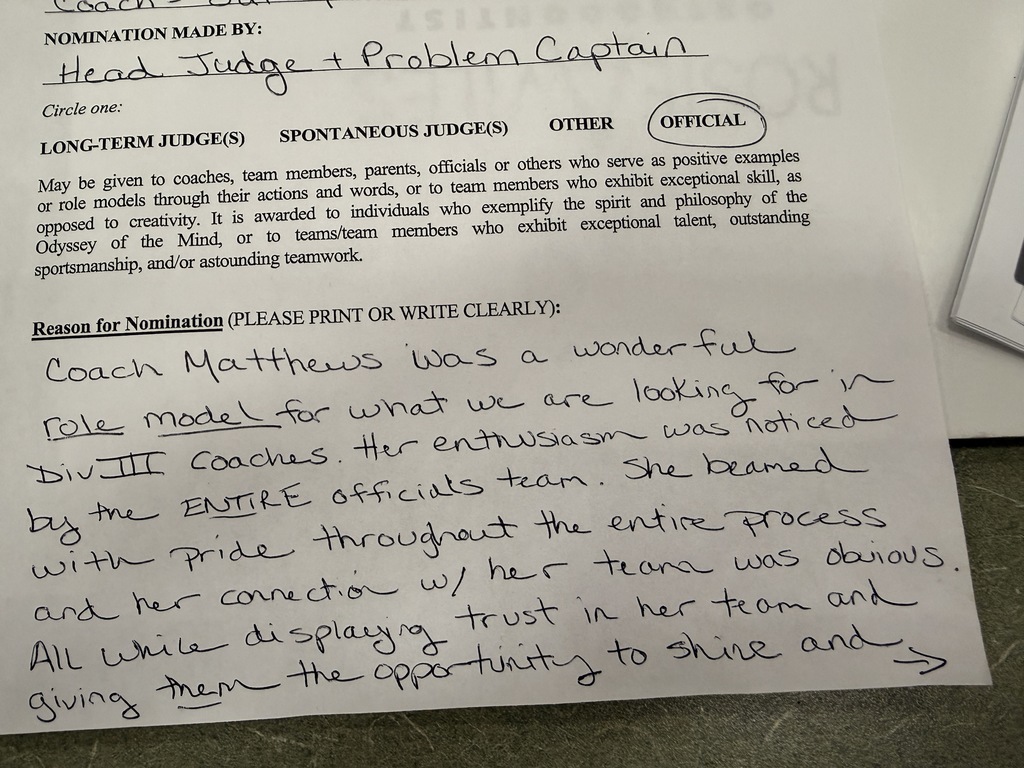 Coach
NOMINATION MADE BY:
Head Judge + Problem Captain
Circle one:
LONG-TERM JUDGE(S) SPONTANEOUS JUDGE(S) OTHER OFFICIAL
May be given to coaches, team members, parents, officials or others who serve as positive examples
or role models through their actions and words, or to team members who exhibit exceptional skill, as
opposed to creativity. It is awarded to individuals who exemplify the spirit and philosophy of the
Odyssey of the Mind, or to teams/team members who exhibit exceptional talent, outstanding
sportsmanship, and/or astounding teamwork.
Reason for Nomination (PLEASE PRINT OR WRITE CLEARLY):
Coach Matthews was a wonderful
role model for what we are looking for in
Div III Coaches. Her enthusiasm was noticed
by the ENTIRE officials team. She beamed
with pride throughout the entire process
and her connection w/ her team was obvious.
All while displaying trust in her team and
giving them the opportunity to shine and →